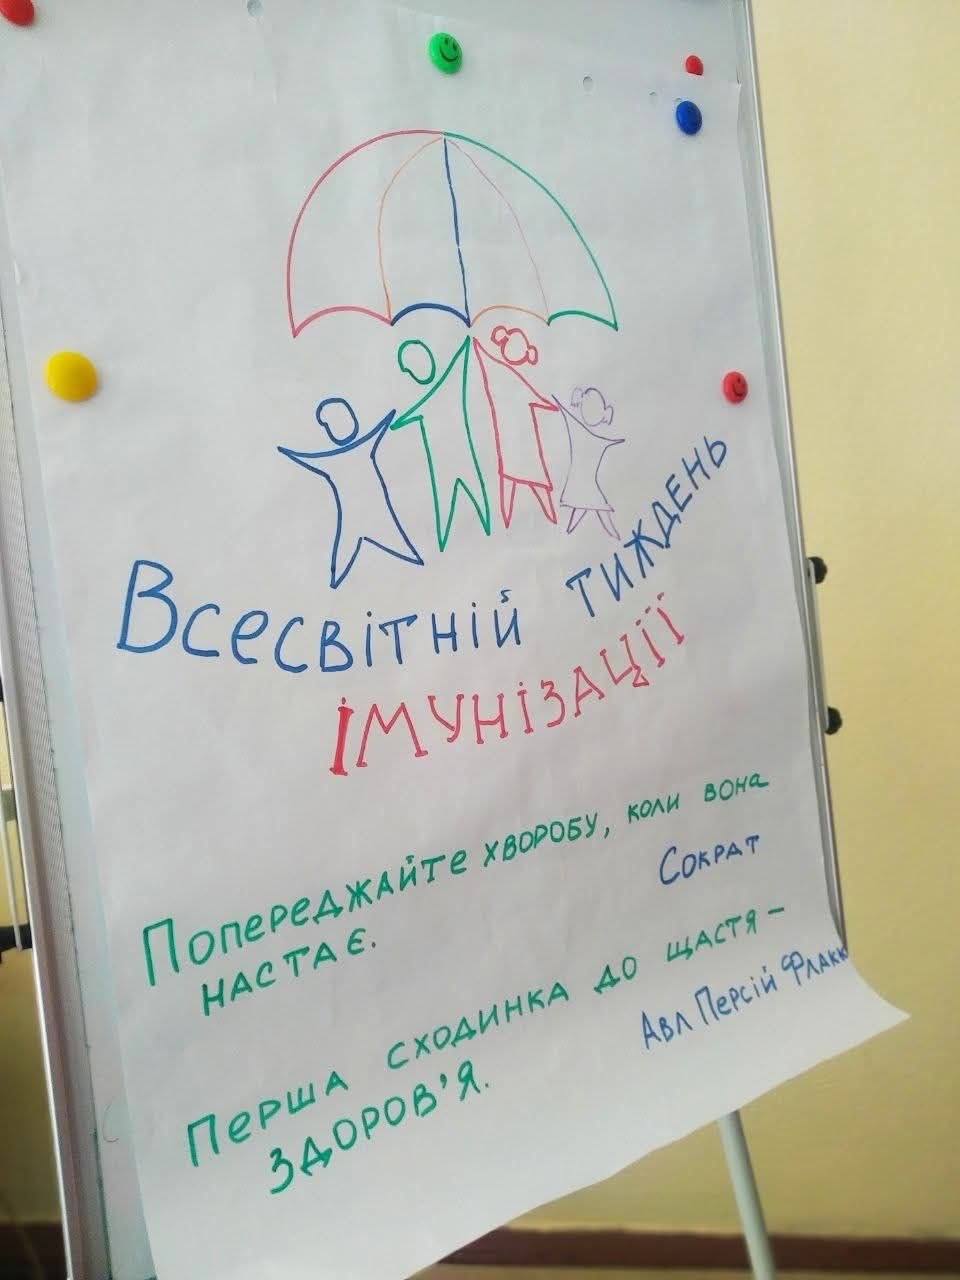 Всесвітній тиждень
імунізації
Попереджайте хворобу, коли вона
настає.
Сократ
Перша сходинка до щастя –
здоров'я.
Авл Персій Флакк